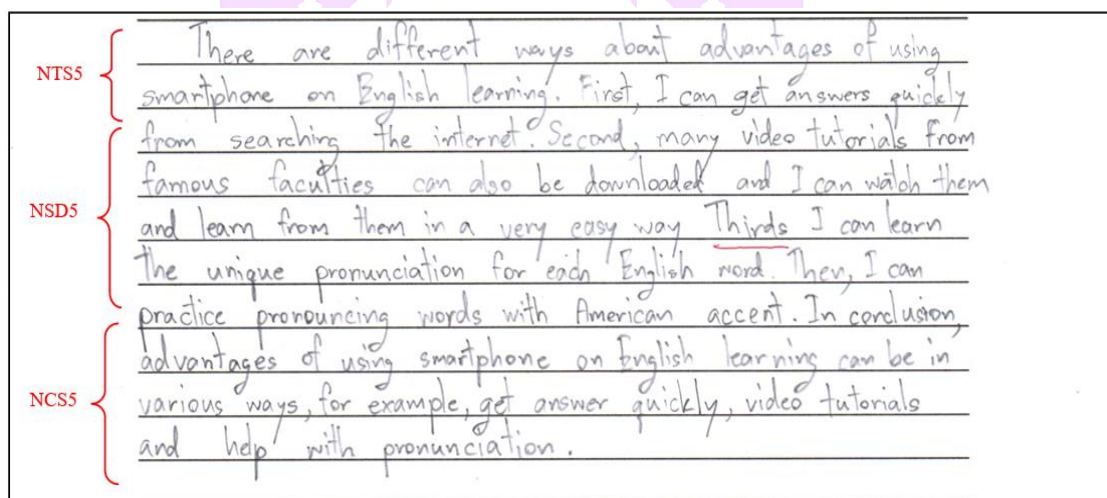 There are different ways about advantages of using
NTS5
smartphone on English learning. First, I can get answers quickly
from searching the internet. Second, many video tutorials from
famous faculties can also be downloaded and I can watch them
NSD5
and learn from them in a very easy way Thirds I can learn
the unique pronunciation for each English word. Then, I can
practice pronouncing words with American accent. In conclusion,
advantages of using smartphone on English learning can be in
NCS5
various ways, for example, get answer quickly, video tutorials
and help with pronunciation.